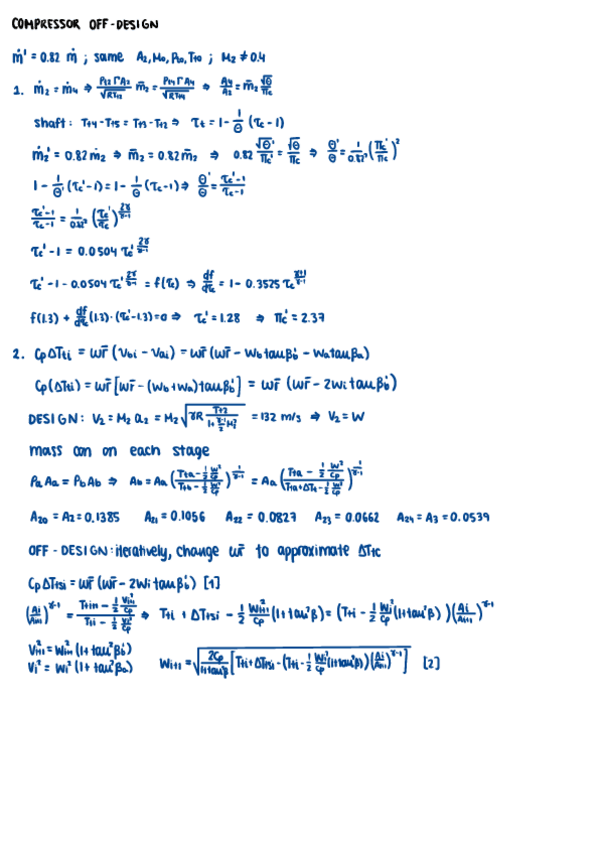 COMPRESSOR OFF-DESIGN
ṁ' = 0.82 ṁ ; same A₂, M₀, Pt₀, Tt₀ ; M₂ ≠ 0.4
1. ṁ₂ = ṁ₄ ⇒ Pt₂ΓA₂/√RTt₂ m̄₂ = Pt₄ΓA₄/√RTt₄ ⇒ A₄/A₂ = m̄₂ √θ/πc
shaft: Tt₄-Tt₅ = Tt₃-Tt₂ ⇒ τt = 1 - 1/θ (τc - 1)
ṁ₂' = 0.82 ṁ₂ ⇒ m̄₂' = 0.82 m̄₂ ⇒ 0.82 √θ'/πc' = √θ/πc ⇒ θ'/θ = 1/0.82² (πc'/πc)²
1 - 1/θ' (τc'-1) = 1 - 1/θ (τc-1) ⇒ θ'/θ = τc'-1/τc-1
τc'-1/τc-1 = 1/0.82² (τc'/τc)^2γ/γ-1
τc' - 1 = 0.0504 τc'^2γ/γ-1
τc' - 1 - 0.0504 τc'^2γ/γ-1 = f(τc) ⇒ df/dτc = 1 - 0.3525 τc^γ+1/γ-1
f(1.3) + df/dτc (1.3)·(τc'-1.3)=0 ⇒ τc' = 1.28 ⇒ πc' = 2.37
2. CpΔTti = ωr̄ (Vbi - Vai) = ωr̄ (ωr̄ - Wb tanβb' - Wa tanβa)
Cp(ΔTti) = ωr̄ [ωr̄ - (Wb + Wa) tanβb'] = ωr̄ (ωr̄ - 2Wi tanβb')
DESIGN: V₂ = M₂ a₂ = M₂ √γR Tt₂/1+γ-1/2 M₂² = 132 m/s ⇒ V₂ = W
mass con on each stage
ρaAa = ρbAb ⇒ Ab = Aa (Tta - 1/2 W²/Cp / Ttb - 1/2 W²/Cp)^1/γ-1 = Aa (Tta - 1/2 W²/Cp / Tta+ΔTt - 1/2 W²/Cp)^1/γ-1
A₂₀ = A₂ = 0.1385 A₂₁ = 0.1056 A₂₂ = 0.0827 A₂₃ = 0.0662 A₂₄ = A₃ = 0.0539
OFF-DESIGN: iteratively, change ωr̄ to approximate ΔTtc
CpΔTtsi = ωr̄ (ωr̄ - 2Wi tanβb') [1]
(Ai/Ai+1)^γ-1 = Tti+1 - 1/2 Vi+1²/Cp / Tti - 1/2 Vi²/Cp ⇒ Tti + ΔTtsi - 1/2 Wi+1²/Cp (1+tan²β) = (Tti - 1/2 Wi²/Cp (1+tan²β)) (Ai/Ai+1)^γ-1
Vi+1² = Wi+1² (1+tan²βb')
Vi² = Wi² (1+tan²βa) Wi+1 = √2Cp/1+tan²β [Tti+ΔTtsi - (Tti - 1/2 Wi²/Cp (1+tan²β)) (Ai/Ai+1)^γ-1] [2]